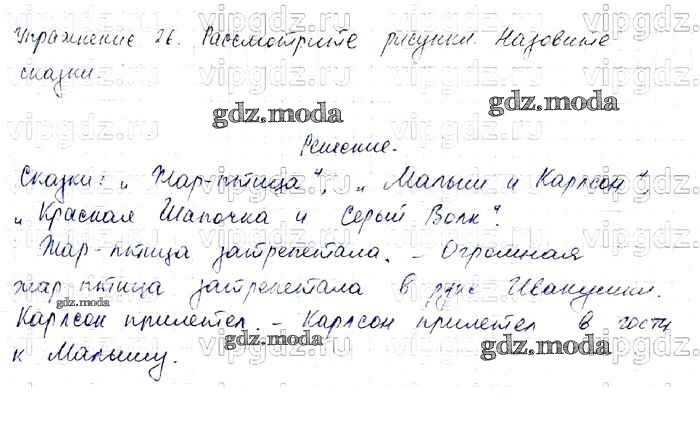 Упражнение 26. Рассмотрите рисунки. Назовите
сказки.
gdz.moda
gdz.moda
Решение.
Сказки: „Жар-птица", „Малыш и Карлсон",
„Красная Шапочка и Серый Волк".
Жар-птица затрепетала. - Огромная
жар-птица затрепетала в руке Иванушки.
gdz.moda
Карлсон прилетел. - Карлсон прилетел в гости
к Малышу.
gdz.moda